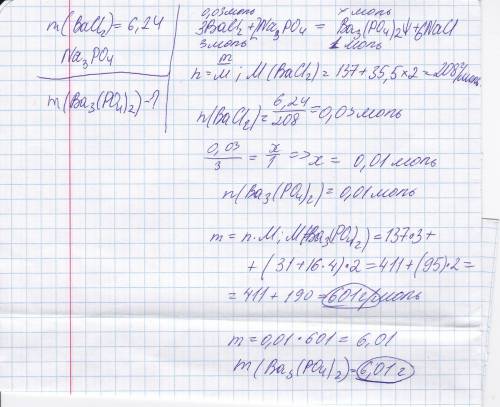 m(BaCl₂)=6,24
Na₃PO₄
m(Ba₃(PO₄)₂)-?
0,03моль x моль
3BaCl₂+2Na₃PO₄ = Ba₃(PO₄)₂↓+6NaCl
3моль 1 моль
n= m/M ; M(BaCl₂)=137+35,5×2=208г/моль
n(BaCl₂)= 6,24/208 =0,03моль
0,03/3 = x/1 => x = 0,01 моль
n(Ba₃(PO₄)₂)=0,01моль
m = n·M; M(Ba₃(PO₄)₂)=137·3+
+(31+16·4)·2=411+(95)·2=
=411+190=601г/моль
m=0,01·601=6,01
m(Ba₃(PO₄)₂)=6,01г